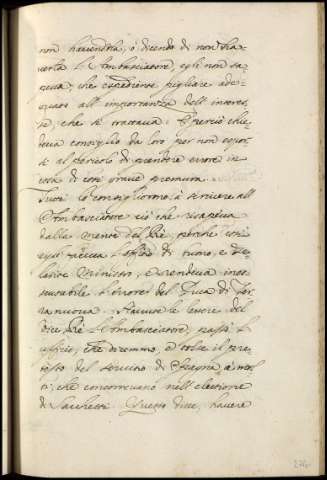 non havendola, ò dicendo di non ha-
verla l'Ambasciatore, egli non sa-
peva, che espediente pigliare ade-
quato all'importanza dell'interes-
se, che si trattava. E perciò chie-
deva consiglio da loro per non espor-
si al pericolo di prendere errore in
cosa di così grave premura.
Tutti lo consigliorno, à scrivere all'
Ambasciatore ciò che risapeva
della mente del Rè, perche così
esso faceva l'offitio di buono, e fe-
dele Ministro, e rendeva ines-
scusabile l'errore del Duca di Ter-
ranuova. Havute le lettere del
Vice Rè l'Ambasciatore, passò l'
ufficio, che diremmo, e tolse il pre-
testo del servitio di Spagna à mol-
ti, che concorrevano nell'elettione
di Sacchetti. Questo dice, havere
276